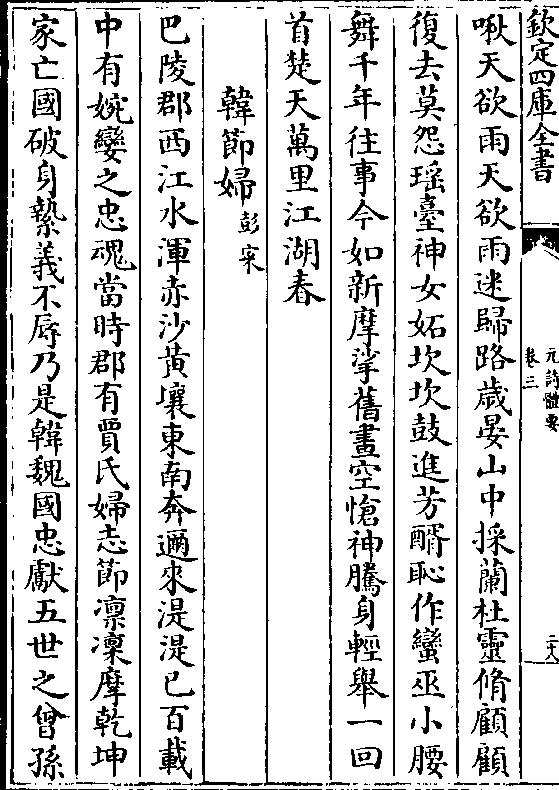 欽定四庫全書
元詩體要
卷三
二十八
啾天欲雨天欲雨迷歸路歲晏山中採蘭杜靈脩顧顧
復去莫怨瑶臺神女妬坎坎鼓進芳醑恥作蠻巫小腰
舞千年往事今如新摩挲舊畫空愴神騰身輕舉一回
首楚天萬里江湖春
韓節婦彭宷
巴陵郡西江水渾赤沙黃壤東南奔邇來湜湜已百載
中有婉孌之忠魂當時郡有賈氏婦志節凛凜摩乾坤
家亡國破身縶義不辱乃是韓魏國忠獻五世之曾孫